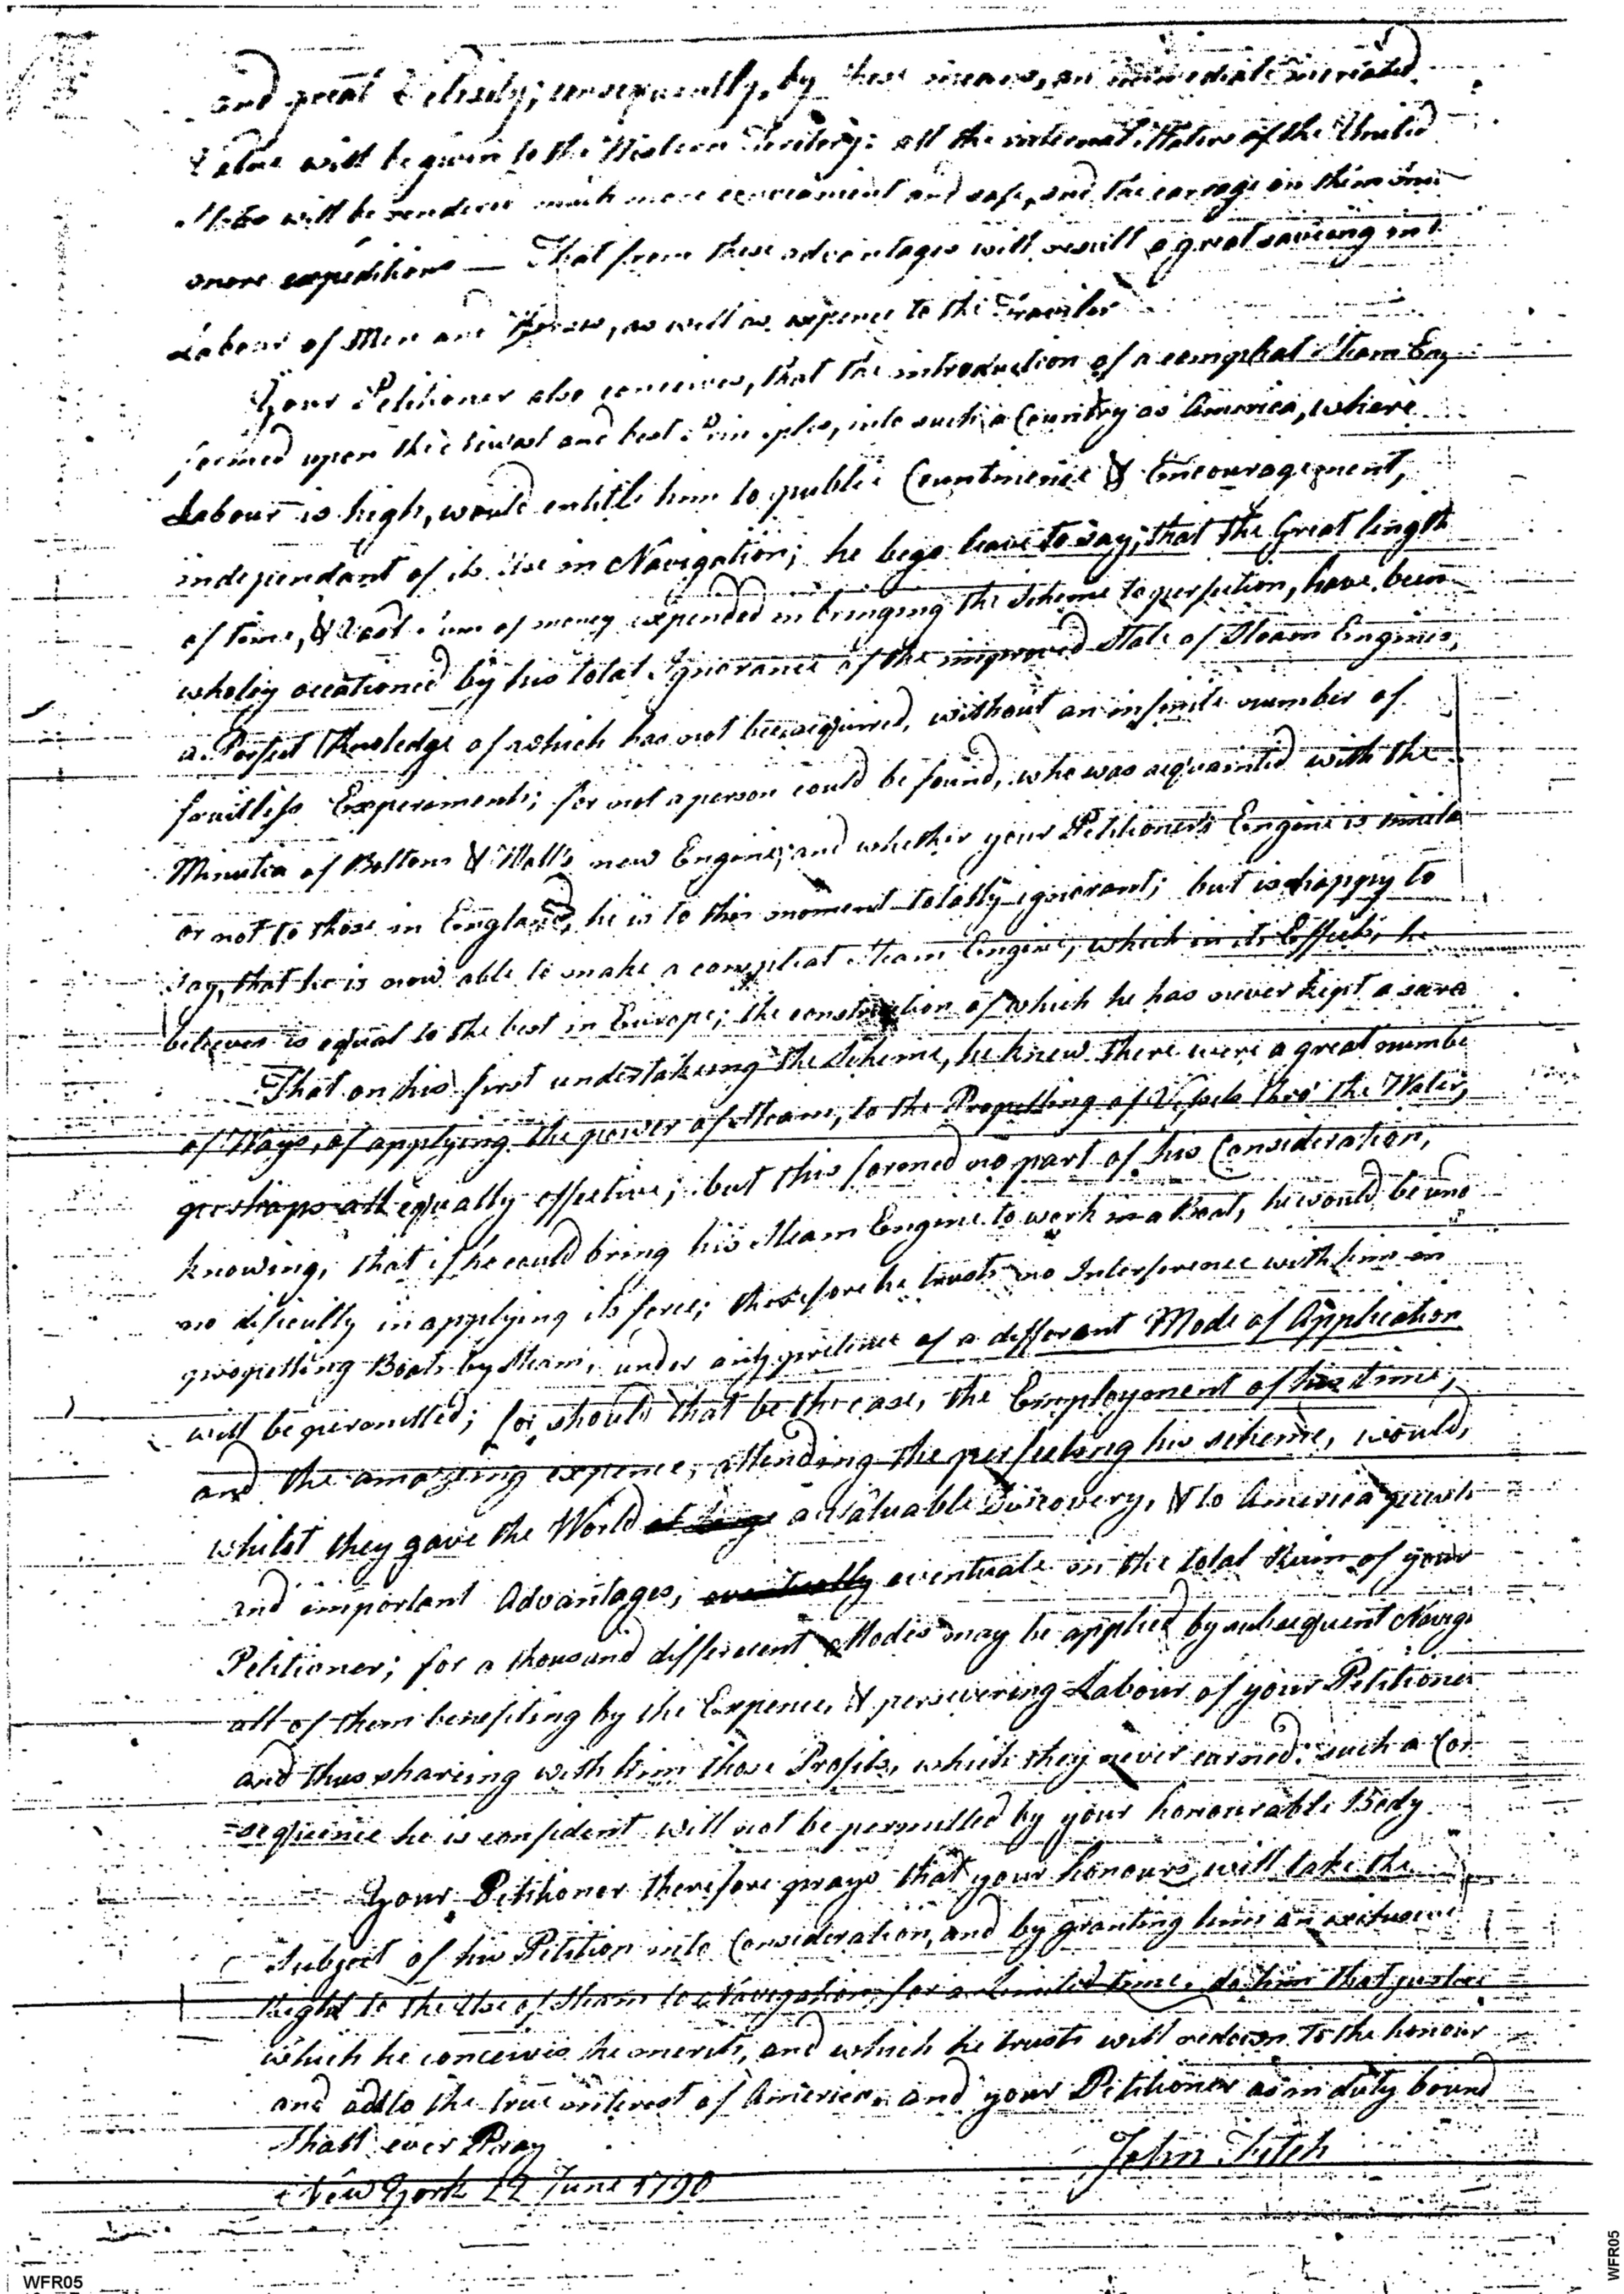 and great Velosity; consequently, by these means, an immediate increased
Value will be given to the Western Territory: all the internal Waters of the United
States will be rendered much more convenient and safe, and the carriage on them
more expeditious — That from these advantages will result a great saveing in t
Labour of Men and Horses, as well as expence to the Traveler
Your Petitioner also conceives, that the introduction of a compleat Steam Eng
formed upon the newest and best Principles, into such a Country as America, where
Labour is high, would entitle him to public Countinence & Encouragement,
independant of its Use in Navigation; he begs leave to say, that the Great length
of time, & Vast Sum of money expended in bringing the Scheme to perfection, have been
wholey occationed by his total Ignorance of the improved State of Steam Engines,
a Perfect Knoledge of which has not been acquired, without an infinite number of
fruitless Experiments; for not a person could be found, who was acquainted with the
Minutia of Boltons & Watt's new Engine; and whether your Petitioner's Engine is simila
or not to those in England, he is to this moment totally ignorant; but is happy to
say, that he is now able to make a compleat Steam Engine, which in its Effects, he
believes is equal to the best in Europe; the construction of which he has never kept a
That on his first undertakeing the Scheme, he knew there were a great numbe
of Ways, of applying the power of Steam, to the Propelling of Vessels thro' the Water,
perhaps all equally effective; but this formed no part of his Consideration,
knowing, that if he could bring his Steam Engine to work in a Boat, he would be und
no dificulty in applying its force; therefore he trusts no Interference with him in
propelling Boats by Steam, under any pretence of a differant Mode of Application
will be permitted; for should that be the case, the Employment of his time,
and the amazeing expence, attending the perfecting his scheme, would,
whilst they gave the World at large a Valuable Discovery, & to America
and important Advantages, eventually eventuate in the total Ruin of your
Petitioner; for a thousand different Modes may be applied by subsequent Naviga
all of them benefiting by the Expence, & persevering Labour of your Petitioner
and thus shareing with him those Profits, which they never earned: such a Con
=sequence he is confident will not be permitted by your honourable Body
Your Petitioner therefore prays that your honours will take the
Subject of his Petition into Consideration, and by granting him an exclusive
Right to the Use of Steam to Navigation, for a Limited time, do him that justice
which he conceives he merits, and which he trusts will redown to the honour
and add to the true interest of America. and your Petitioner as in duty bound
Shall ever Pray
John Fitch
New York 22 June 1790
WFR05
WFR05